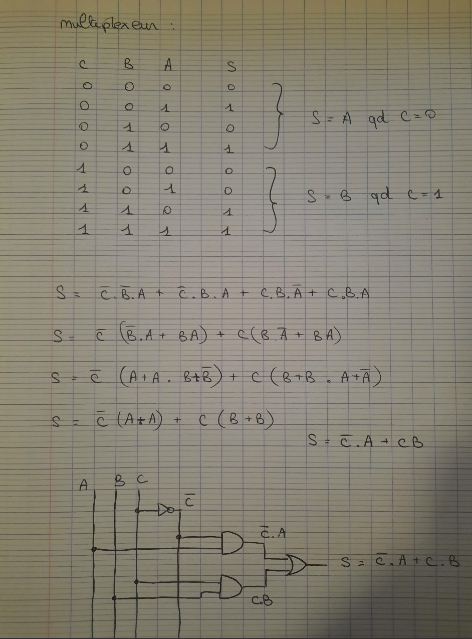 multiplexeur :
C B A S
0 0 0 0
0 0 1 1
0 1 0 0
0 1 1 1
S = A qd C = 0
1 0 0 0
1 0 1 0
1 1 0 1
1 1 1 1
S = B qd C = 1
S = C̅.B̅.A + C̅.B.A + C.B.A̅ + C.B.A
S = C̅ (B̅.A + BA) + C(B A̅ + BA)
S = C̅ (A+A . B+B̅) + C (B+B . A+A̅)
S = C̅ (A+A) + C (B+B)
S = C̅.A + CB
A B C
C̅
C̅.A
S = C̅.A + C.B
C.B